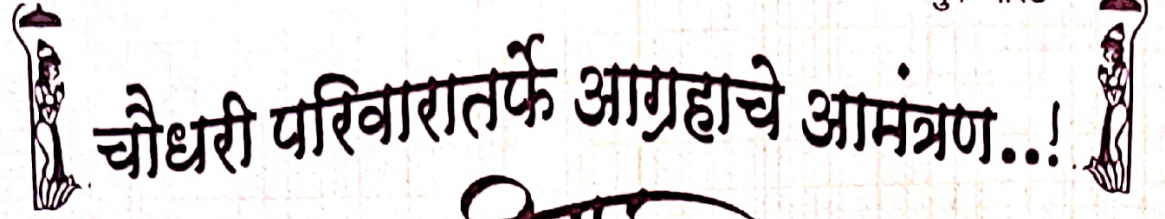 चौधरी परिवारातर्फे आग्रहाचे आमंत्रण..!